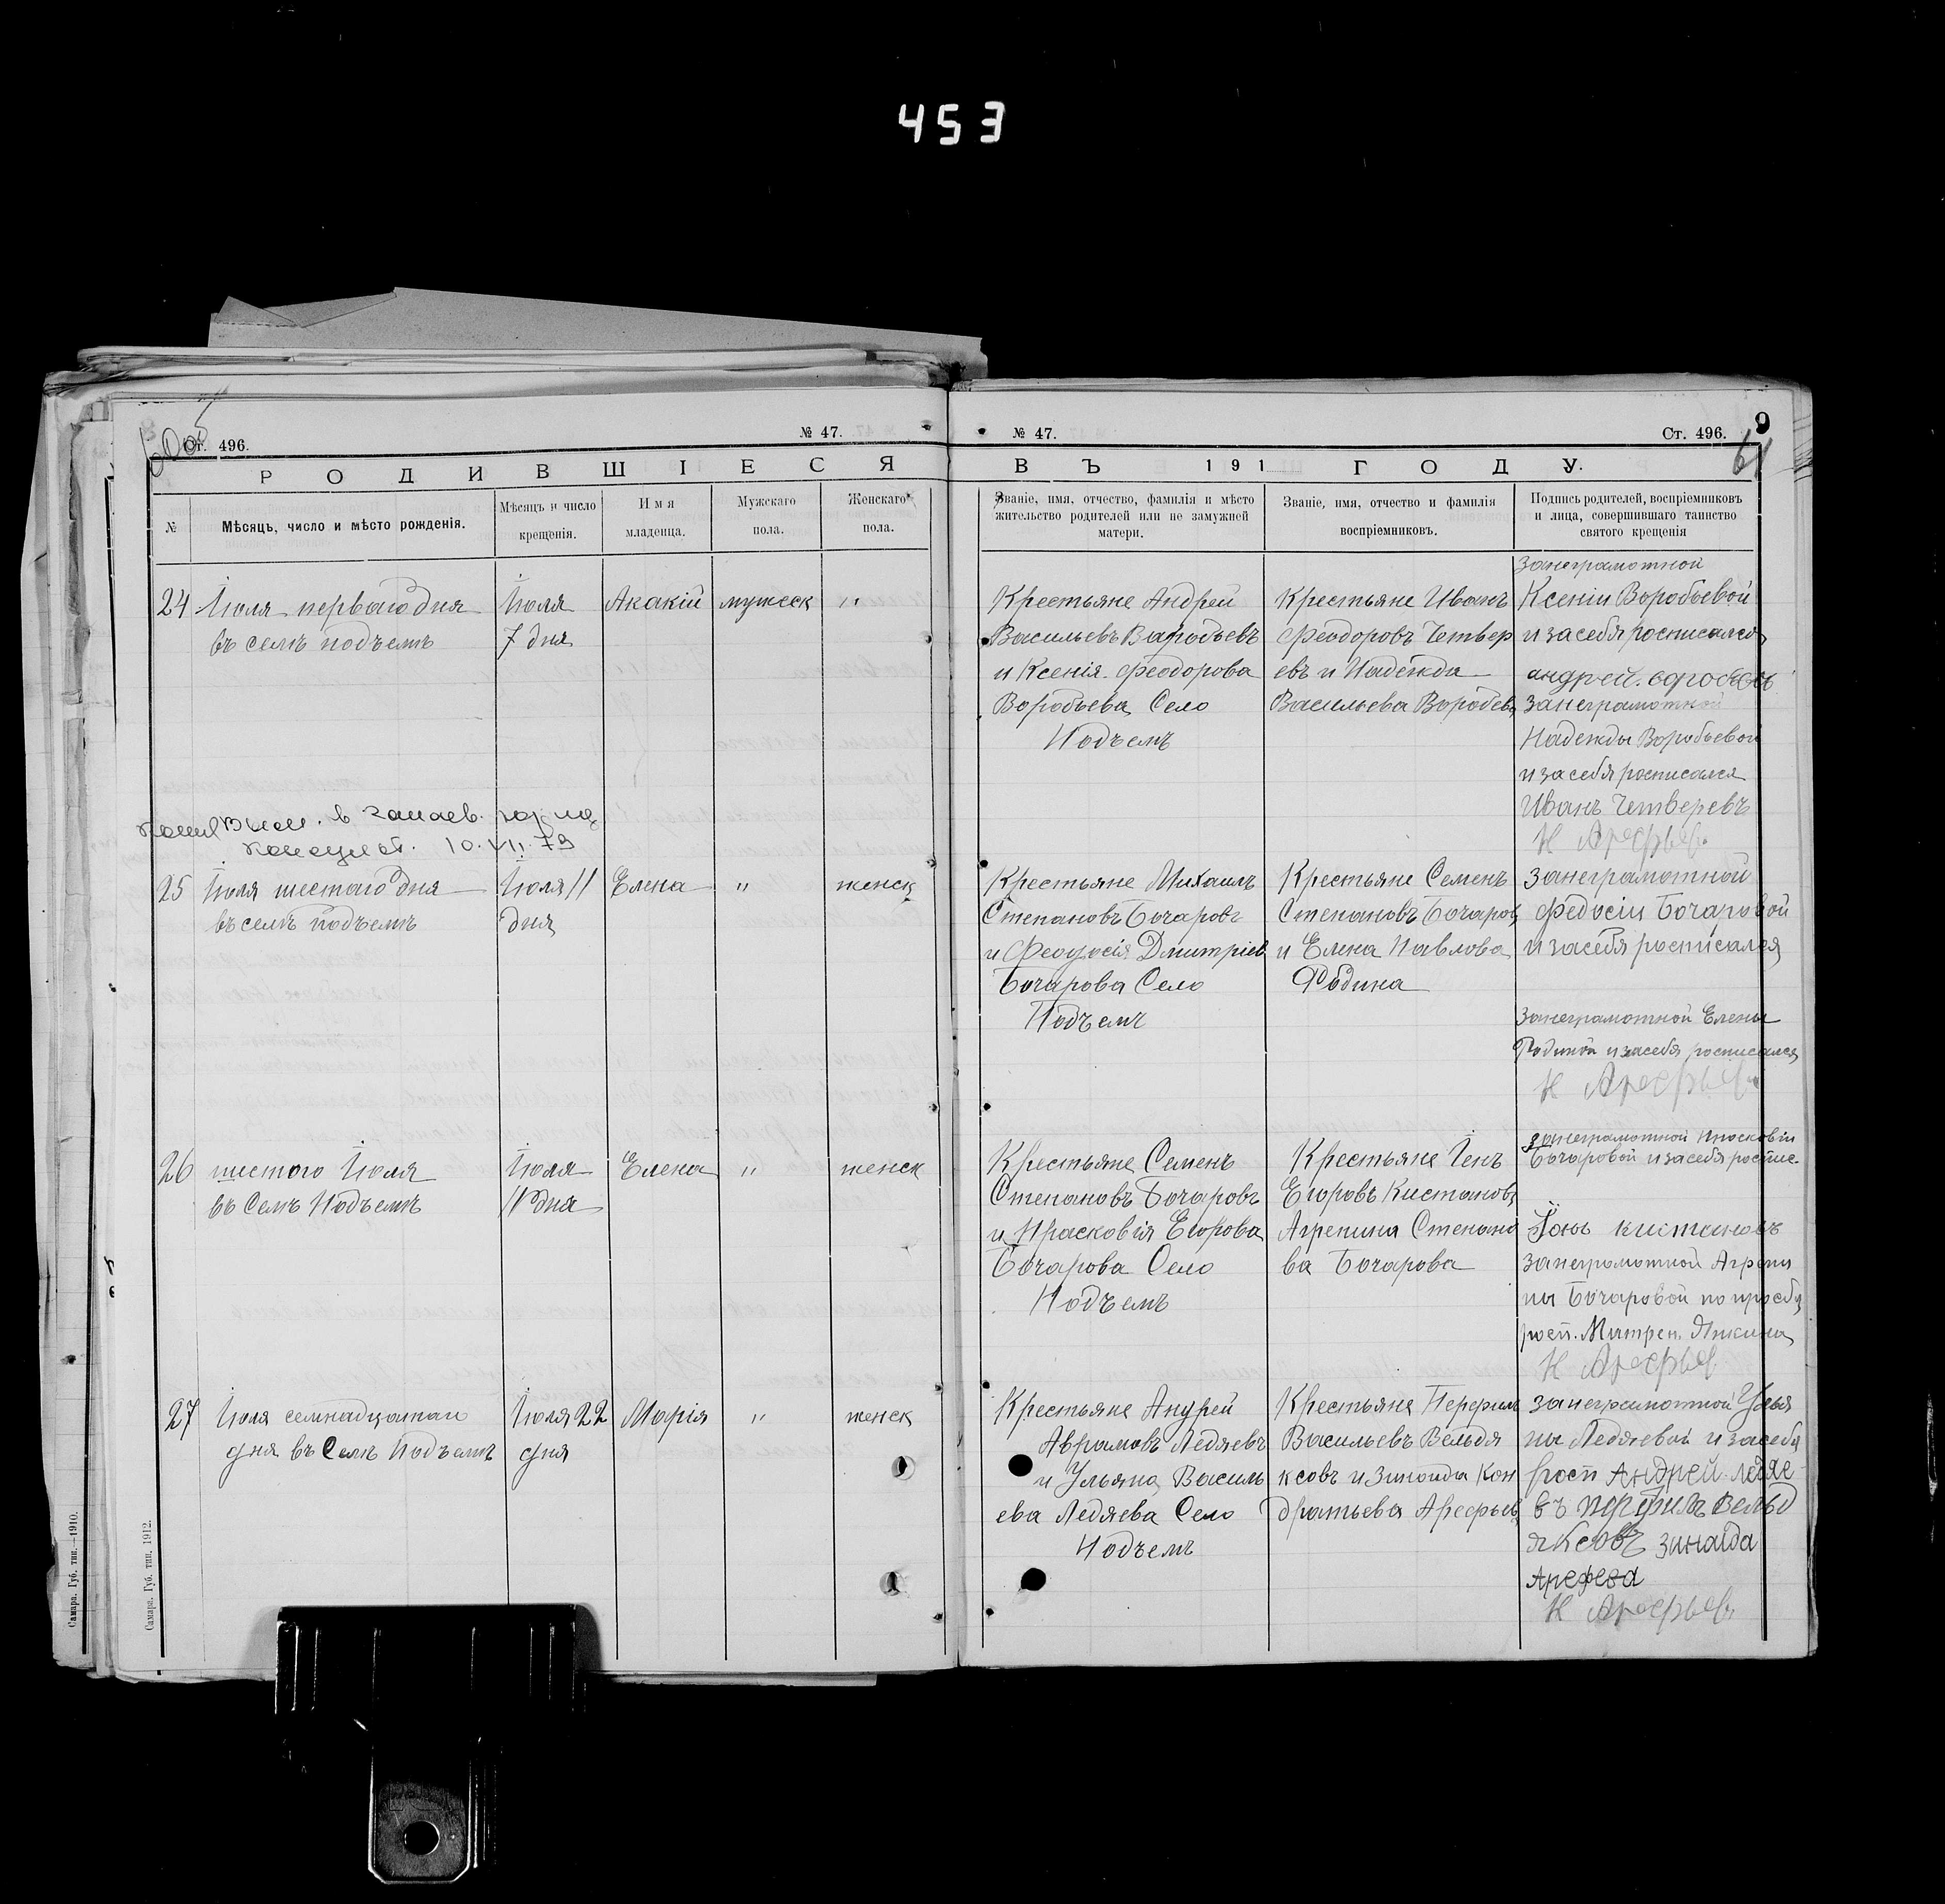 453
Ст. 496.
№ 47.
№ 47.
Ст. 496.
9
61
РОДИВШІЕСЯ
ВЪ 191 ГОДУ.
№
Мѣсяцъ, число и мѣсто рожденія.
Мѣсяцъ и число крещенія.
Имя младенца.
Мужскаго пола.
Женскаго пола.
Званіе, имя, отчество, фамилія и мѣсто
жительство родителей или не замужней
матери.
Званіе, имя, отчество и фамилія
воспріемниковъ.
Подпись родителей, воспріемниковъ
и лица, совершившаго таинство
святого крещенія
24
Іюля перваго дня
въ селѣ подъемъ
Іюля
7 дня
Акакій
мужеск
"
Крестьяне Андрей
Васильевъ Варобьевъ
и Ксенія Феодорова
Воробьева Село
Подъемъ
Крестьяне Иванъ
Феодоровъ Четвер
евъ и Надежда
Васильева Воробьев
занеграмотной
Ксеніи Воробьевой
и засебя росписался
андрей.
занеграмотной
Надежды Воробьевой
и засебя росписался
Иванъ Четверевъ
Н Арефьев.
10.VII.79
25
Іюля шестаго дня
въ селѣ подъемъ
Іюля 11
дня
Елена
"
женск
Крестьяне Михаилъ
Степановъ Бочаровъ
и Феодосія Дмитріев
Бочарова Село
Подъемъ
Крестьяне Семенъ
Степановъ Бочаров
и Елена Павлова
Родина
занеграмотной
Федосіи Бочаровой
и засебя росписался
занеграмотной Елены
Родиной и засебя росписался
Н Арефьев.
26
шестого Іюля
въ Селѣ Подъемъ
Іюля
11 дня
Елена
"
женск
Крестьяне Семенъ
Степановъ Бочаровъ
и Прасковія Егорова
Бочарова Село
Подъемъ
Крестьяне
Егоровъ Кистановъ
Агрепина Степано
ва Бочарова
занеграмотной Просковіи
Бочаровой и засебя роспис.
кистановъ
занеграмотной Агрепи
ны Бочаровой по просбѣ
росп. Митреи.
Н Арефьев
27
Іюля семнадцатаго
дня въ Селѣ Подъемъ
Іюля 22
дня
Марія
"
женск
Крестьяне Андрей
Аврамовъ Ледяевъ
и Ульяна Василь
ева Ледяева Село
Подъемъ
Крестьяне Перфилъ
Васильевъ Вельдя
ксовъ и Зинаида Кон
дратьева Арефьев
занеграмотной Улья
ны Ледяевой и засебя
росп Андрей Ледяе
въ перфилъ Вельд
яксовъ зинаида
Арефева
Н Арефьев.
Самара. Губ. тип.—1910.
Самара. Губ. тип. 1912.